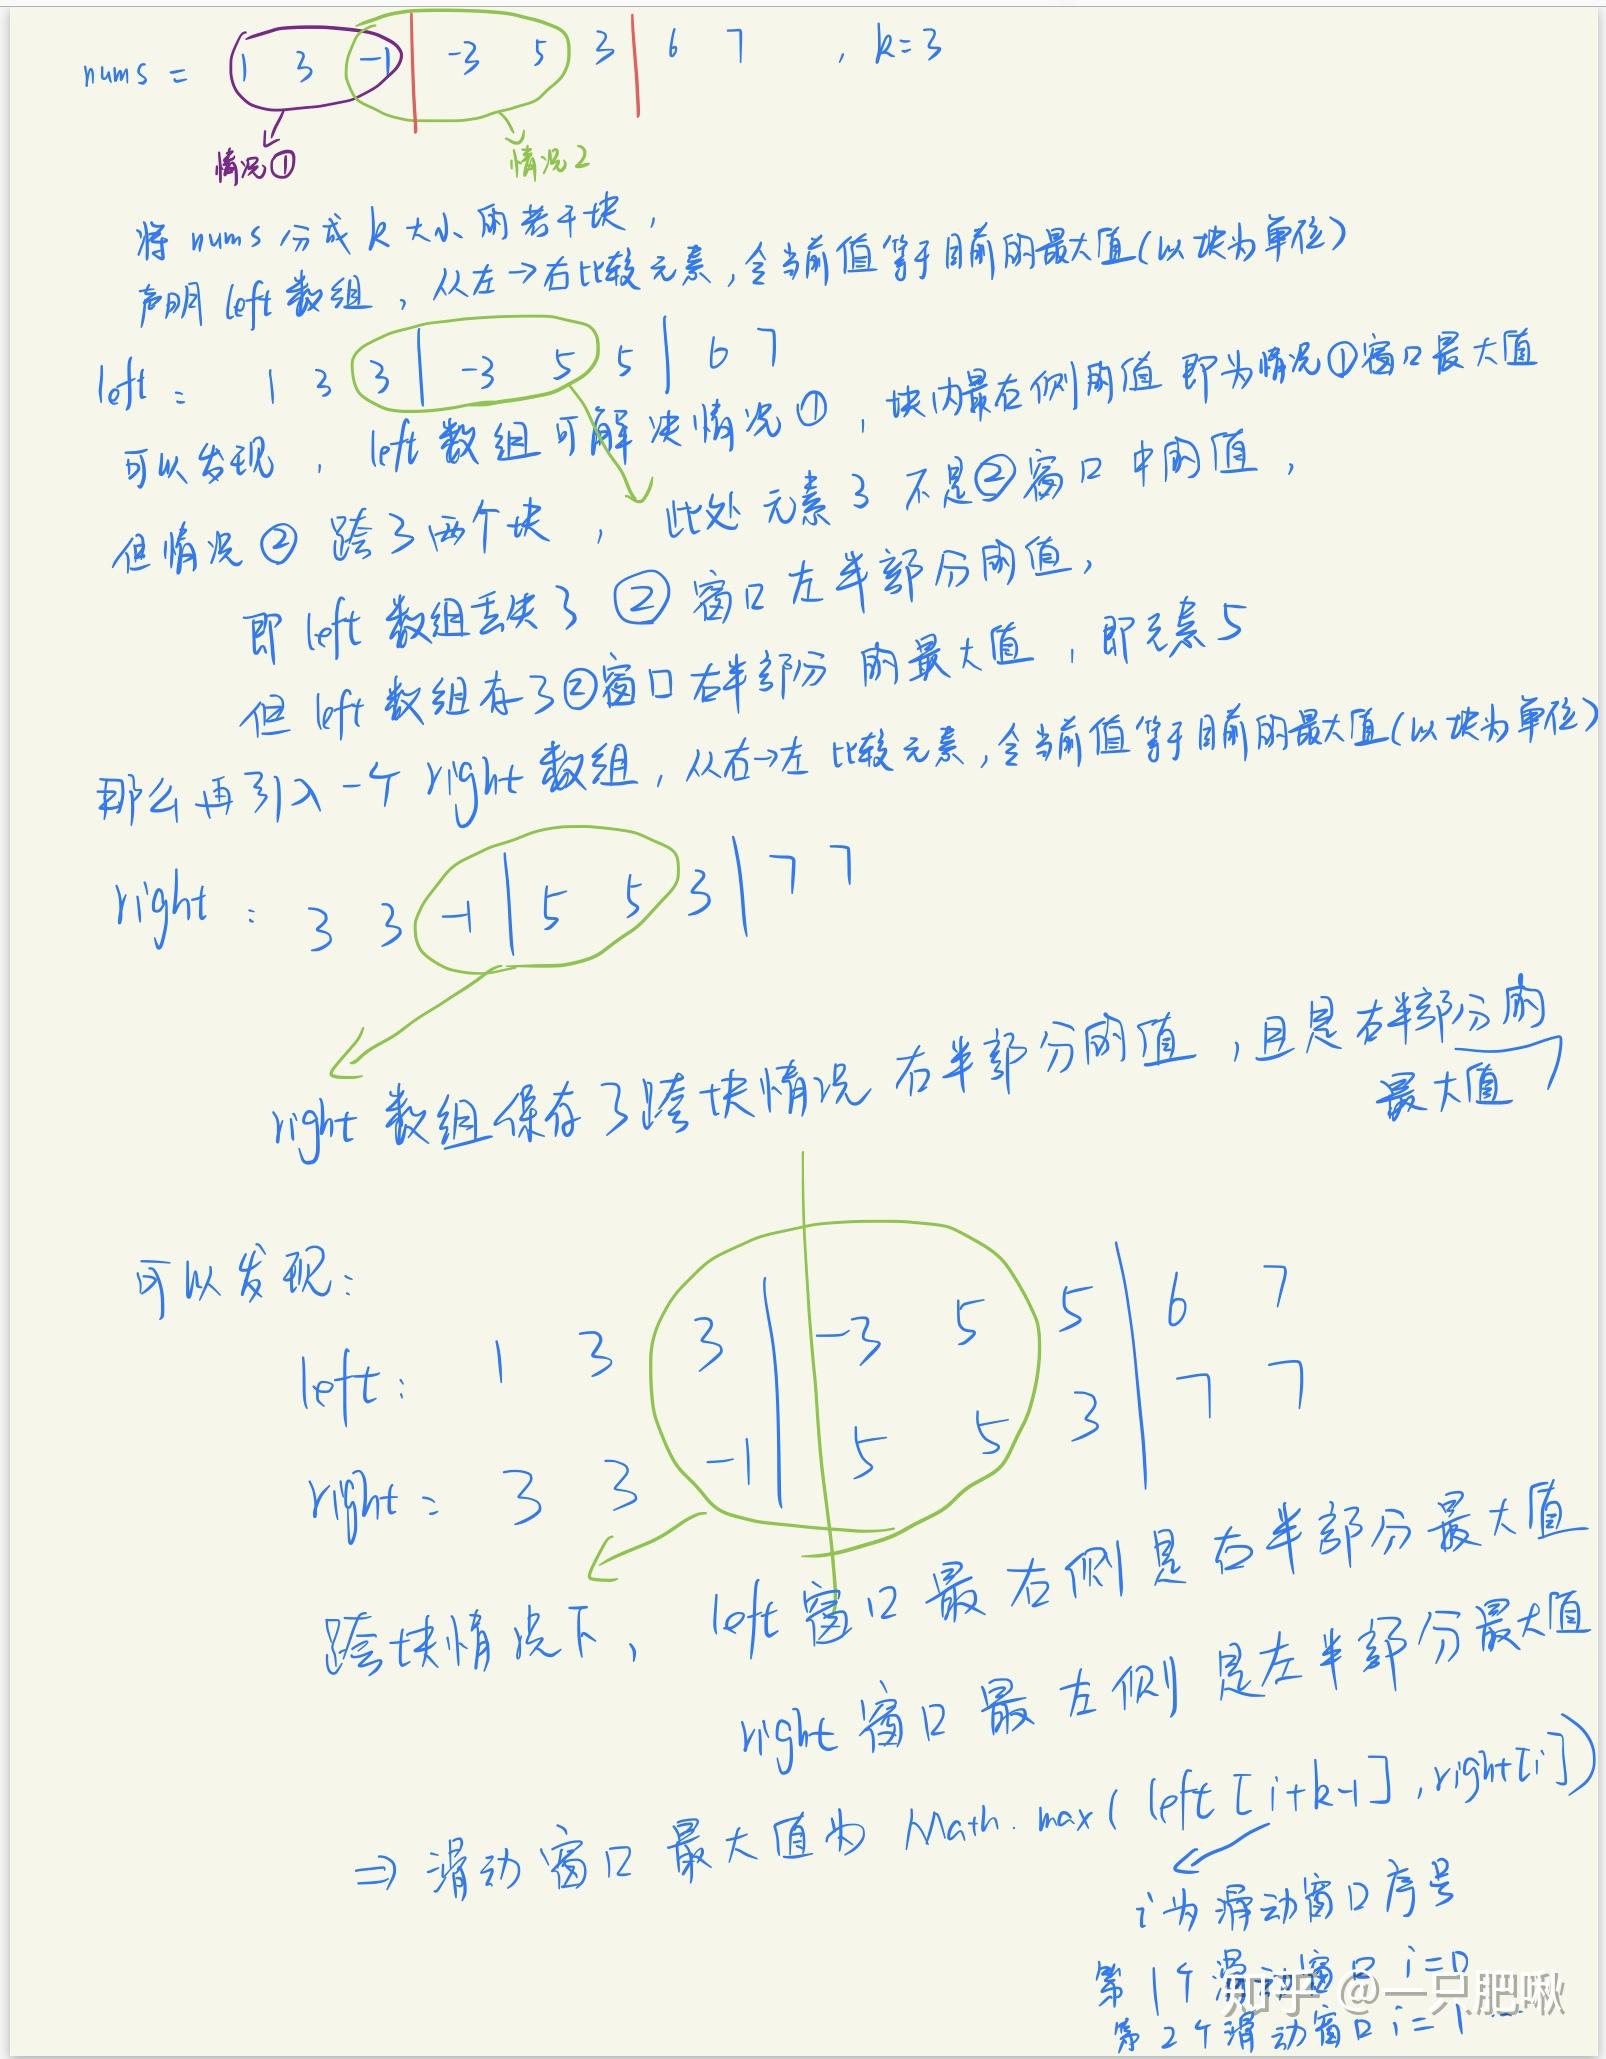 nums = 1 3 -1 | -3 5 3 | 6 7 , k=3
情况① 情况2
将 nums 分成 k 大小的若干块,
声明 left 数组, 从左→右比较元素, 令当前值等于目前的最大值(以块为单位)
left : 1 3 3 | -3 5 5 | 6 7
可以发现, left 数组可解决情况①, 块内最右侧的值 即为情况①窗口最大值
但情况② 跨了两个块, 此处元素3 不是②窗口中的值,
即 left 数组丢失了②窗口左半部分的值,
但 left 数组存了②窗口右半部分的最大值, 即元素5
那么再引入一个 right 数组, 从右→左 比较元素, 令当前值等于目前的最大值(以块为单位)
right : 3 3 -1 | 5 5 3 | 7 7
right 数组保存了跨块情况右半部分的值, 且是右半部分的
最大值
可以发现:
left : 1 3 3 | -3 5 5 | 6 7
right : 3 3 -1 | 5 5 3 | 7 7
跨块情况下, left 窗口最右侧是右半部分最大值
right 窗口最左侧是左半部分最大值
⇒ 滑动窗口最大值为 Math.max(left[i+k-1], right[i])
i为滑动窗口序号
第1个滑动窗口 i=0
第2个滑动窗口 i=1 ...
知乎 @一只肥啾